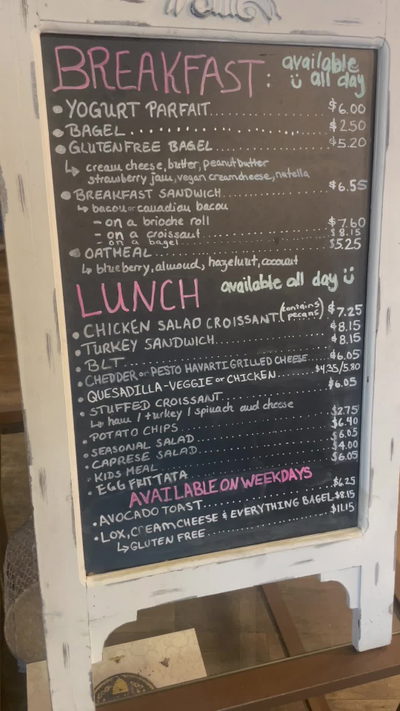 BREAKFAST: available all day
YOGURT PARFAIT $6.00
BAGEL $2.50
GLUTEN FREE BAGEL $5.20
cream cheese, butter, peanut butter
strawberry jam, vegan cream cheese, nutella
BREAKFAST SANDWICH $6.55
bacon or canadian bacon
- on a brioche roll $7.60
- on a croissant $8.15
- on a bagel
OATMEAL $5.25
blueberry, almond, hazelnut, coconut
LUNCH available all day
CHICKEN SALAD CROISSANT (contains pecans) $7.25
TURKEY SANDWICH $8.15
BLT $8.15
CHEDDER or PESTO HAVARTI GRILLED CHEESE $6.05
QUESADILLA-VEGGIE or CHICKEN $4.35/5.80
STUFFED CROISSANT $6.05
ham / turkey / spinach and cheese
POTATO CHIPS $2.75
SEASONAL SALAD $6.40
CAPRESE SALAD $6.05
KIDS MEAL $4.00
EGG FRITTATA $6.05
AVAILABLE ON WEEKDAYS
AVOCADO TOAST $6.25
LOX, CREAM CHEESE & EVERYTHING BAGEL $8.15
GLUTEN FREE $11.15